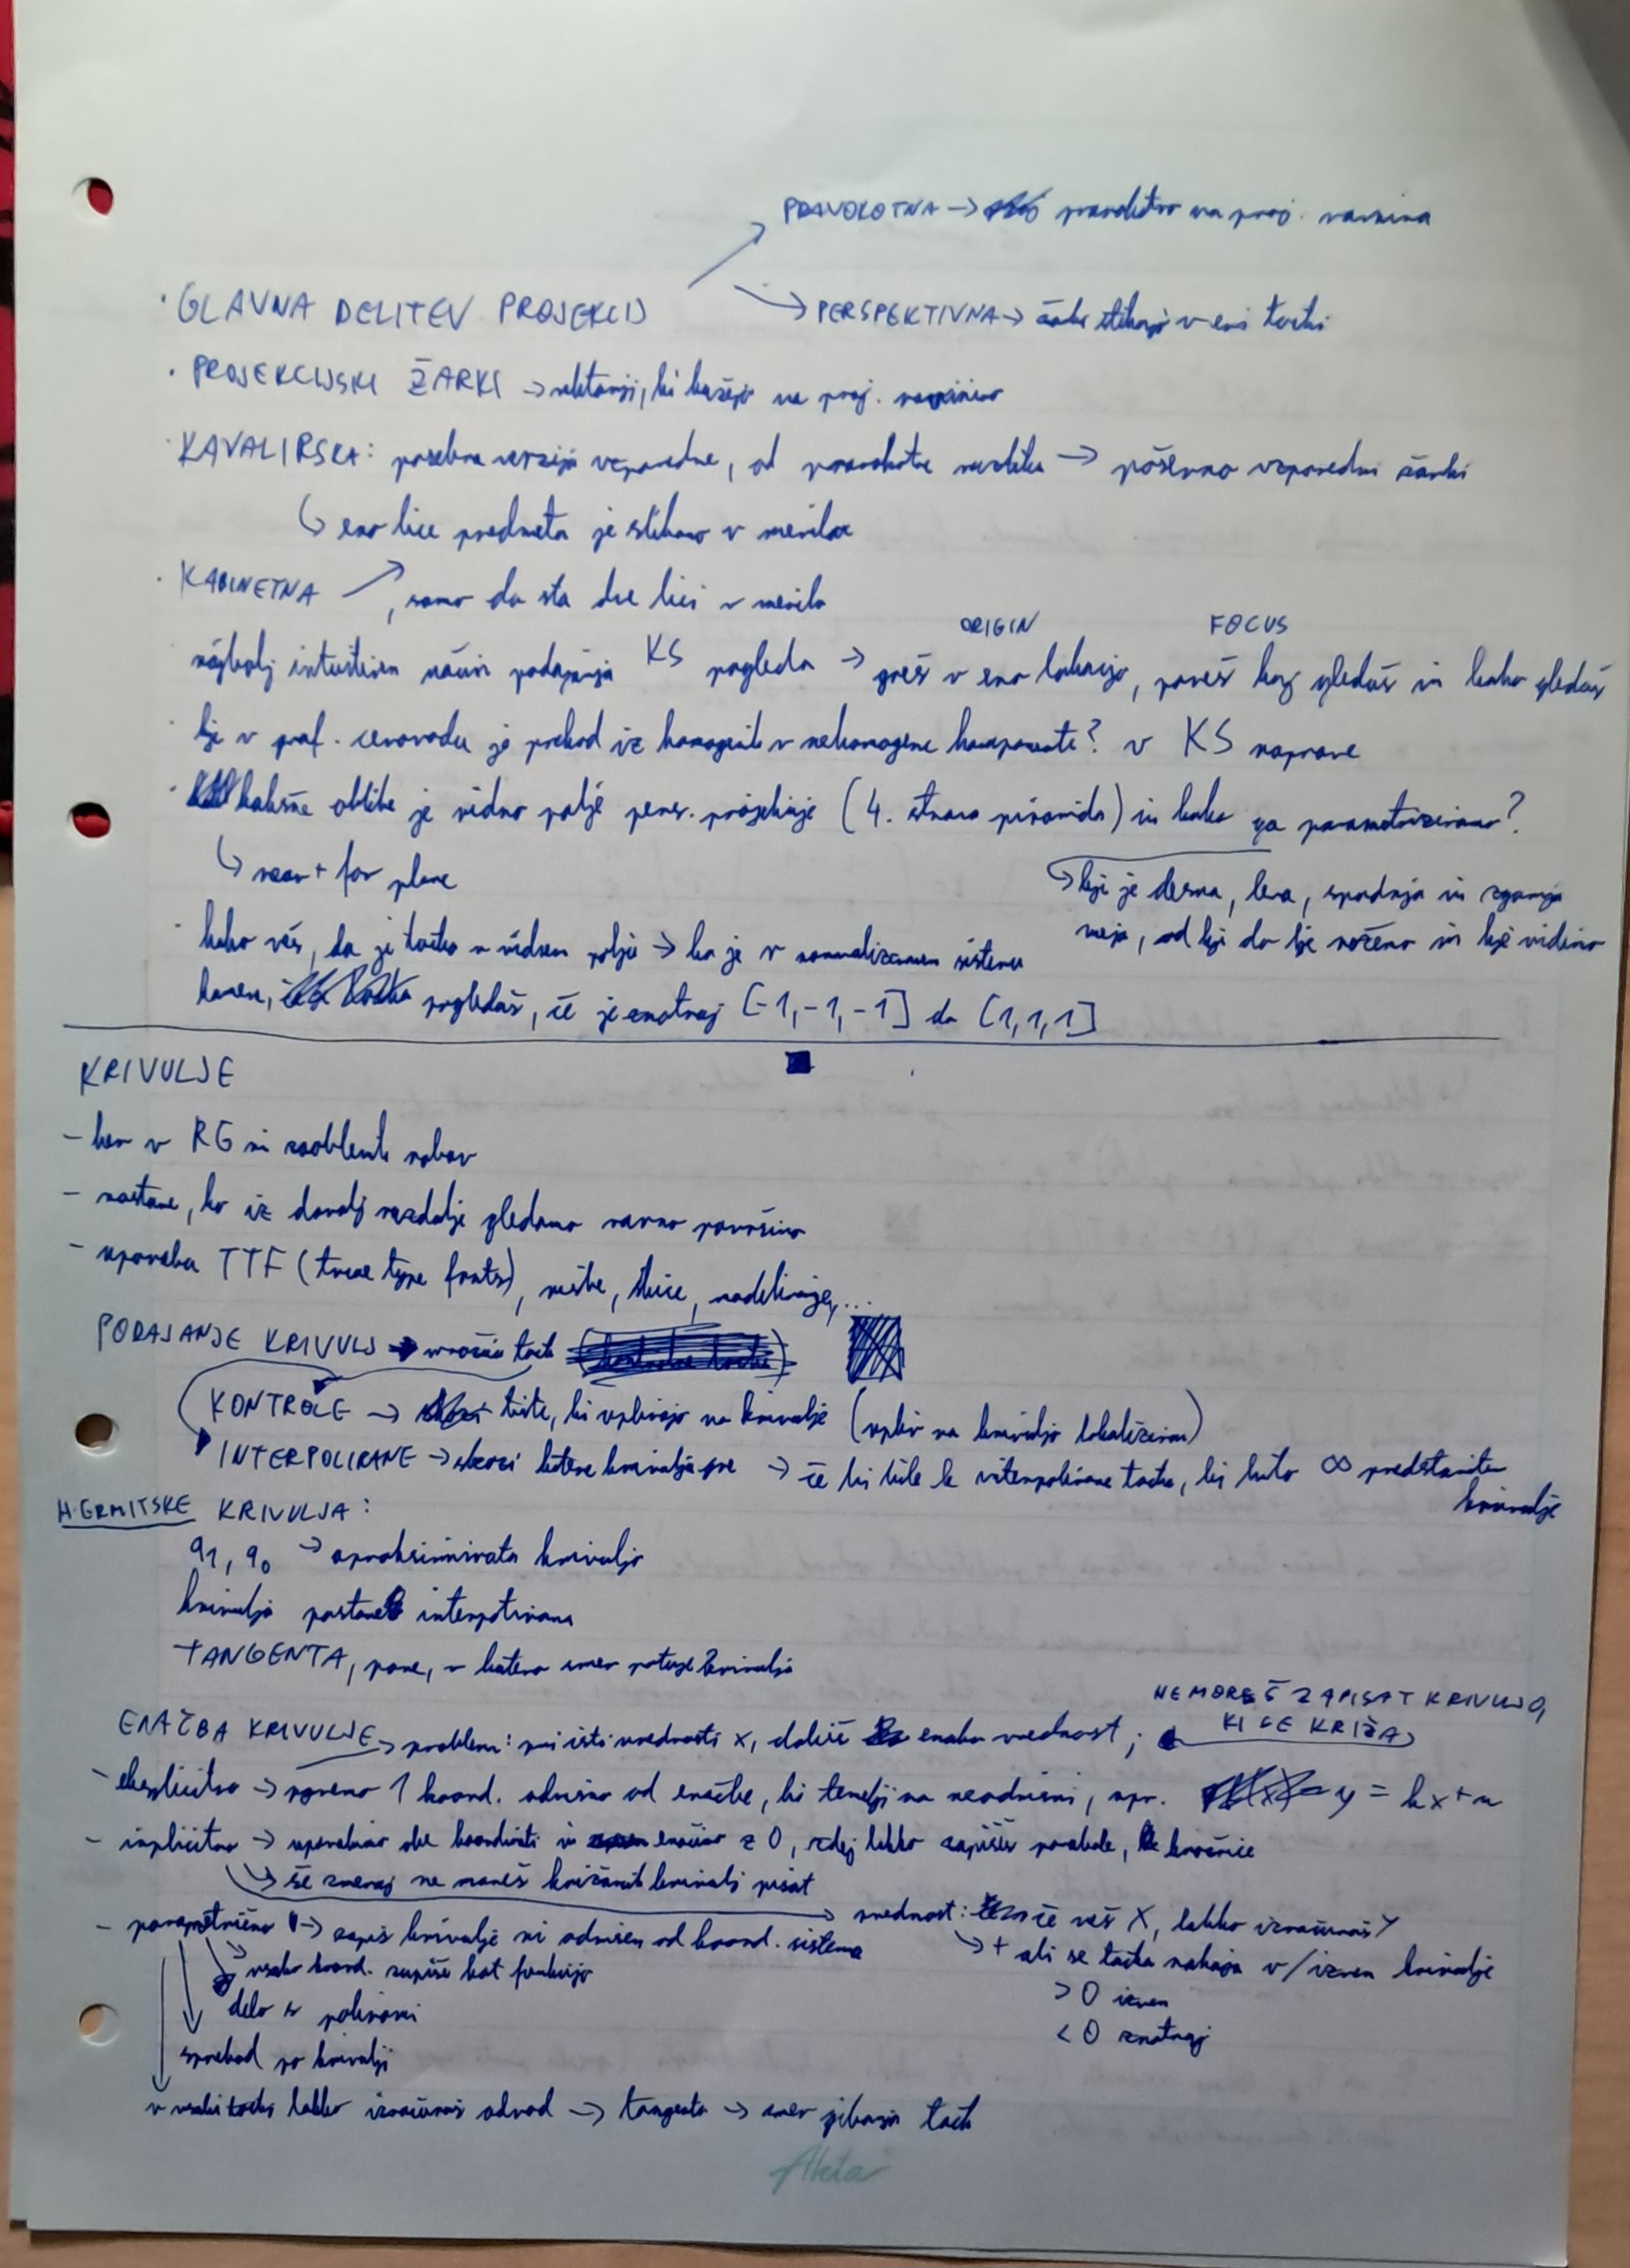 PRAVOKOTNA → pravokotno na proj. ravnino
· GLAVNA DELITEV PROJEKCIJ
→ PERSPEKTIVNA → žarki stikajo v eni točki
· PROJEKCIJSKI ŽARKI → vektorji, ki kažejo na proj. ravnino
· KAVALIRSKA: posebna verzija vzporedne, od pravokotne razlika → poševno vzporedni žarki
↳ eno lice predmeta je slikano v merilu
· KABINETNA ↗, samo da sta dve lici v merilu
ORIGIN FOCUS
najbolj intuitiven način podajanja KS pogleda → greš v eno lokacijo, poveš kaj gledaš in kako gledaš
· kje v graf. cevovodu je prehod iz homogenih v nehomogene komponente? v KS naprave
· kakšne oblike je vidno polje pers. projekcije (4. strana piramida) in kako ga parametriziramo?
↳ near + far plane
↳ kje je desna, leva, spodnja in zgornja
meja, od kje do kje režemo in kaj vidimo
· kako veš, da je točka v vidnem polju → ko je v normaliziranem sistemu
pogledaš, če je znotraj [-1,-1,-1] do [1,1,1]
KRIVULJE
- ker v RG ni zaobljenih robov
- nastane, ko iz dovolj razdalje gledamo ravno površino
- uporaba TTF (true type fonts), modeliranje, ...
PODAJANJE KRIVULJ → množica točk
KONTROLE → tiste, ki vplivajo na krivulje (vpliv na krivuljo lokaliziran)
INTERPOLIRANE → skozi katere krivulja gre → če bi bile le interpolirane točke, bi bilo ∞ predstavitev
krivulje
HERMITSKE KRIVULJA:
q1, q0 → aproksimirata krivuljo
krivulja postane interpolirana
TANGENTA, pove, v katero smer potuje krivulja
NE MOREŠ ZAPISAT KRIVULJO,
KI SE KRIŽA
ENAČBA KRIVULJE → problem: pri isti vrednosti x, dobiš enako vrednost;
- eksplicitno → 1 koord. odvisno od enačbe, ki temelji na neodvisni, npr. y = kx+n
- implicitno → uporabimo obe koordinati in enačimo z 0, zdej lahko zapišeš parabole, krožnice
↳ še zmeraj ne moreš križanih krivulj pisat
→ prednost: če veš X, lahko izračunaš Y
↳ + ali se točka nahaja v/izven krivulje
> 0 izven
< 0 znotraj
- parametrično → zapis krivulje ni odvisen od koord. sistema
vsako koord. zapiše kot funkcijo
delo s polinomi
sprehod po krivulji
v vsaki točki lahko izračunaš odvod → tangenta → smer gibanja točk
Akta